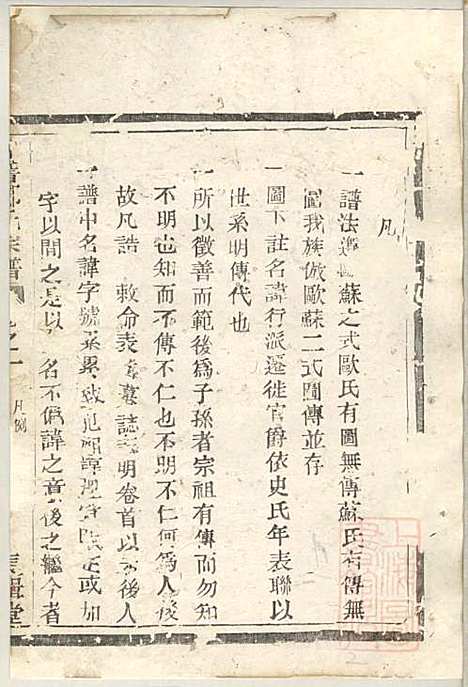 凡
一譜法遵歐蘇之式歐氏有圖無傳蘇氏有傳無
圖我族倣歐蘇二式圖傳並存
一圖下註名諱行派遷徙官爵依史氏年表聯以
世系明傳代也
一所以徵善而範後為子孫者宗祖有傳而勿知
不明也知而不傳不仁也不明不仁何為人後
故凡誥敕命表墓誌明卷首以示後人
一譜中名諱字號系累致犯祖諱定或加
字以間之是以名不偽諱之意後之繼今者
譜
卷一
凡例
堂